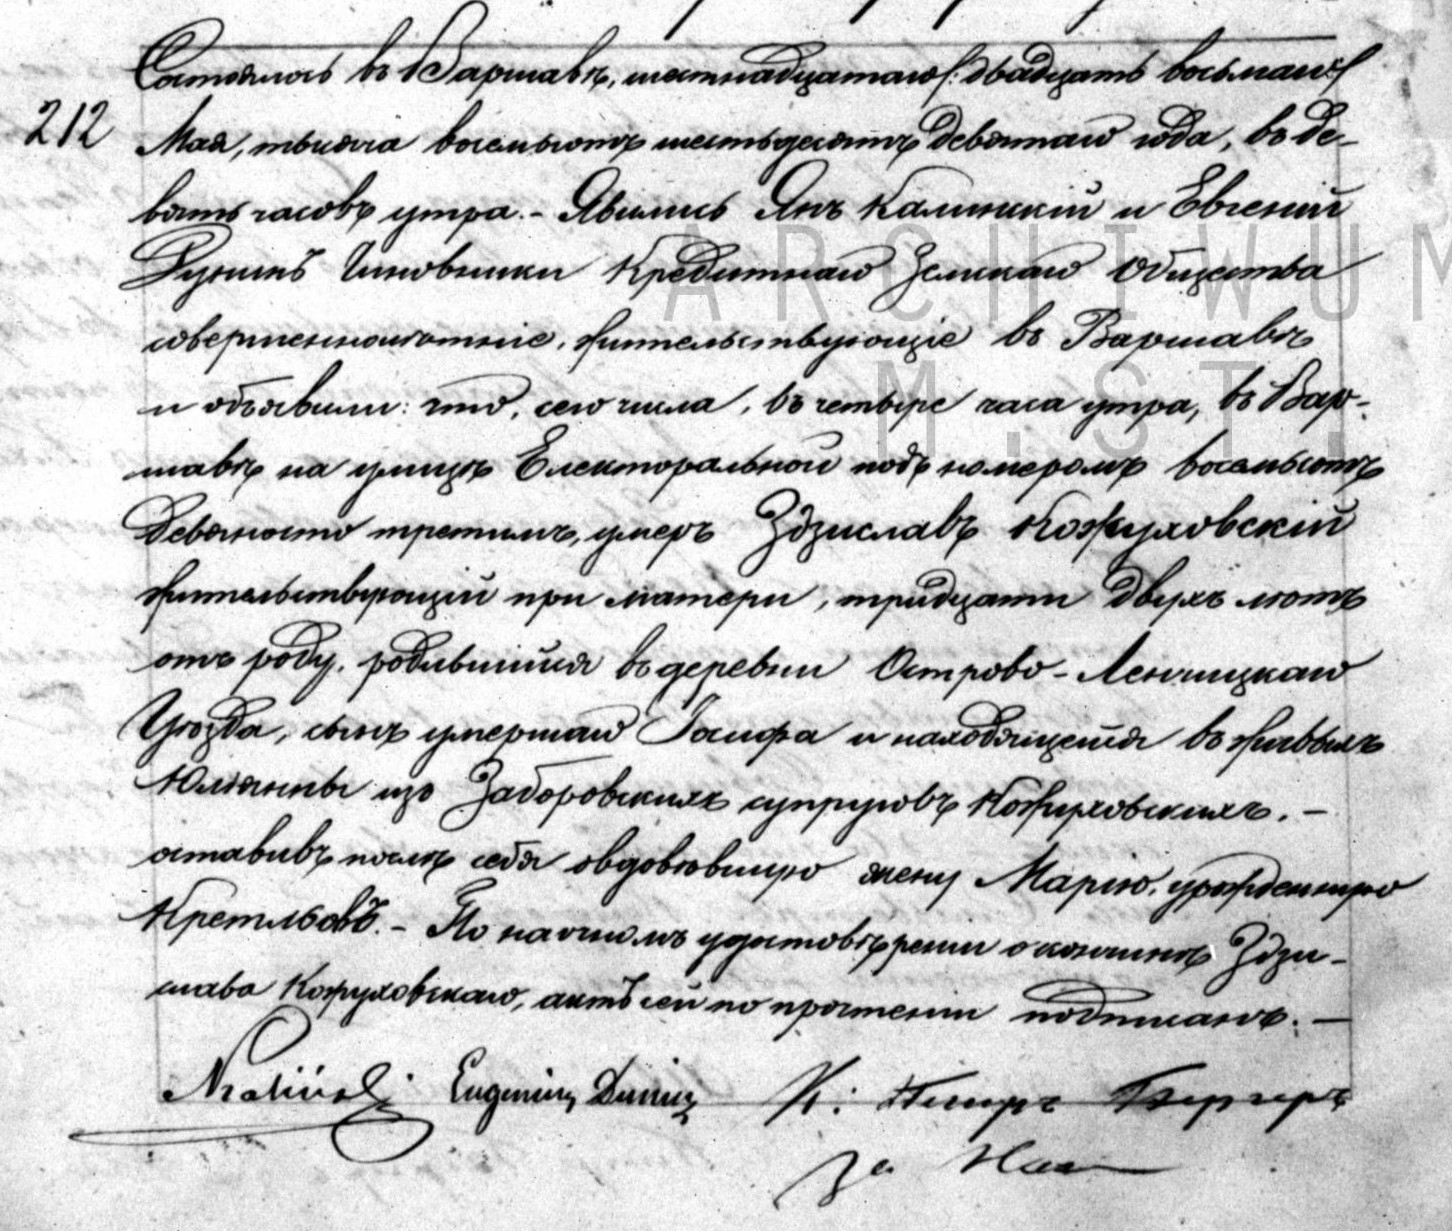 Состоялось въ Варшавѣ, шестнадцатаго /:двадцать восьмаго:/
212
Мая, тысяча восемьсотъ шестьдесятъ девятаго года, въ де-
вять часовъ утра. - Явились Янъ Калинскій и Евгеній
Дунинъ Чиновники Кредитнаго Земскаго Общества
совершеннолѣтніе, жительствующіе въ Варшавѣ
ARCHIWUM
и объявили: что, сего числа, въ четыре часа утра, въ Вар-
M.ST.
шавѣ на улицѣ Електоральной подъ номеромъ восемьсотъ
девяносто третимъ, умеръ Здзиславъ Кожуховскій
жительствующій при матери, тридцати двухъ лѣтъ
отъ роду, родившійся въ деревни Острово - Ленчицкаго
Уѣзда, сынъ умершаго Іосифа и находящейся въ живыхъ
Юліанны изъ Заборовскихъ супруговъ Кожуховскихъ. -
оставивъ послѣ себя овдовѣвшую жену Марію, урожденную
По наочномъ удостовѣреніи о кончинѣ Здзи-
слава Кожуховскаго, актъ сей по прочтеніи подписанъ. -
Eugeniusz Dunin К:
за